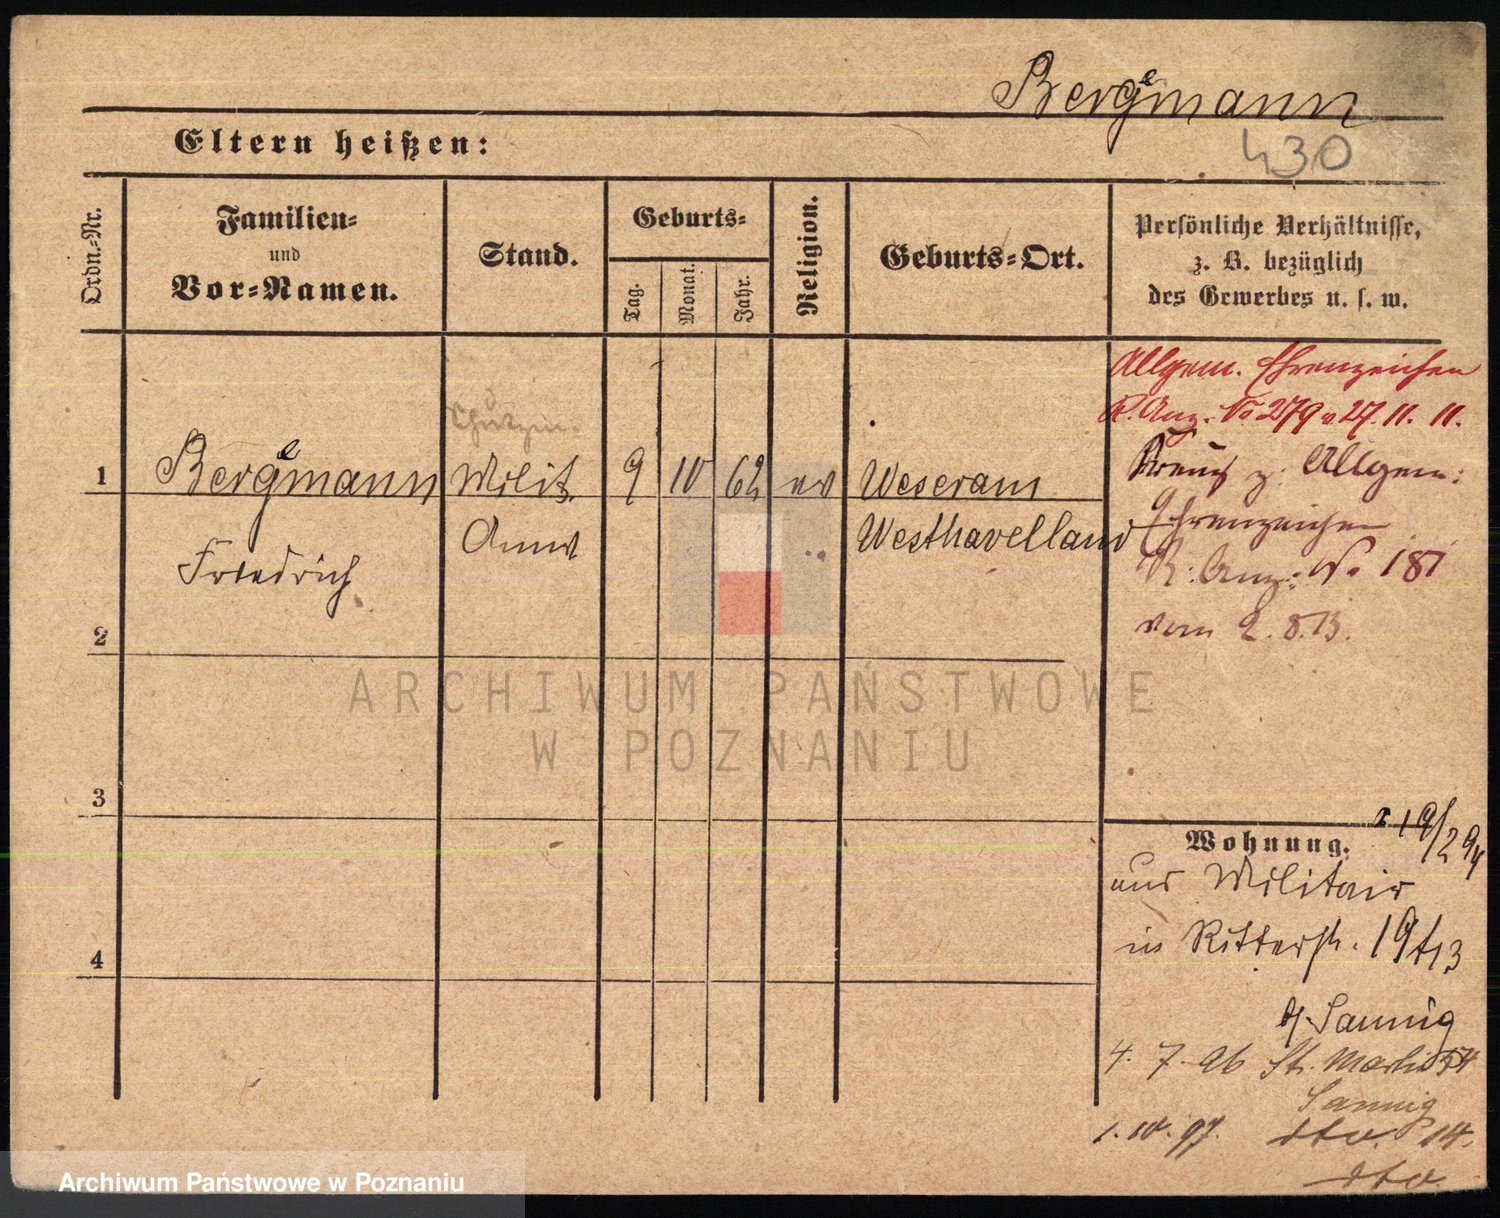 Bergemann
430
Eltern heißen:
Ordn.-Nr.
Familien-
und
Vor-Namen.
Stand.
Geburts-
Tag.
Monat.
Jahr.
Religion.
Geburts-Ort.
Persönliche Verhältnisse,
z. B. bezüglich
des Gewerbes u. s. w.
Allgem. Ehrenzeichen
R. Anz. No 279 v 27. 11. 11.
Kreuz z. Allgem:
Ehrenzeichen
R. Anz: No 181
vom 2. 8. 13.
Schutzm.
1 Bergemann Milit. 9 10 62 ev Weseram
Anw Westhavelland
Friedrich
2
3
4
ARCHIWUM PAŃSTWOWE
W POZNANIU
Wohnung. 19/2 94
aus Militair
in Ritterstr. 19/13
b/ Sannig
4. 7. 96 St. Martin 54
Sannig
1. 10. 97. dto. 14.
dto.
Archiwum Państwowe w Poznaniu